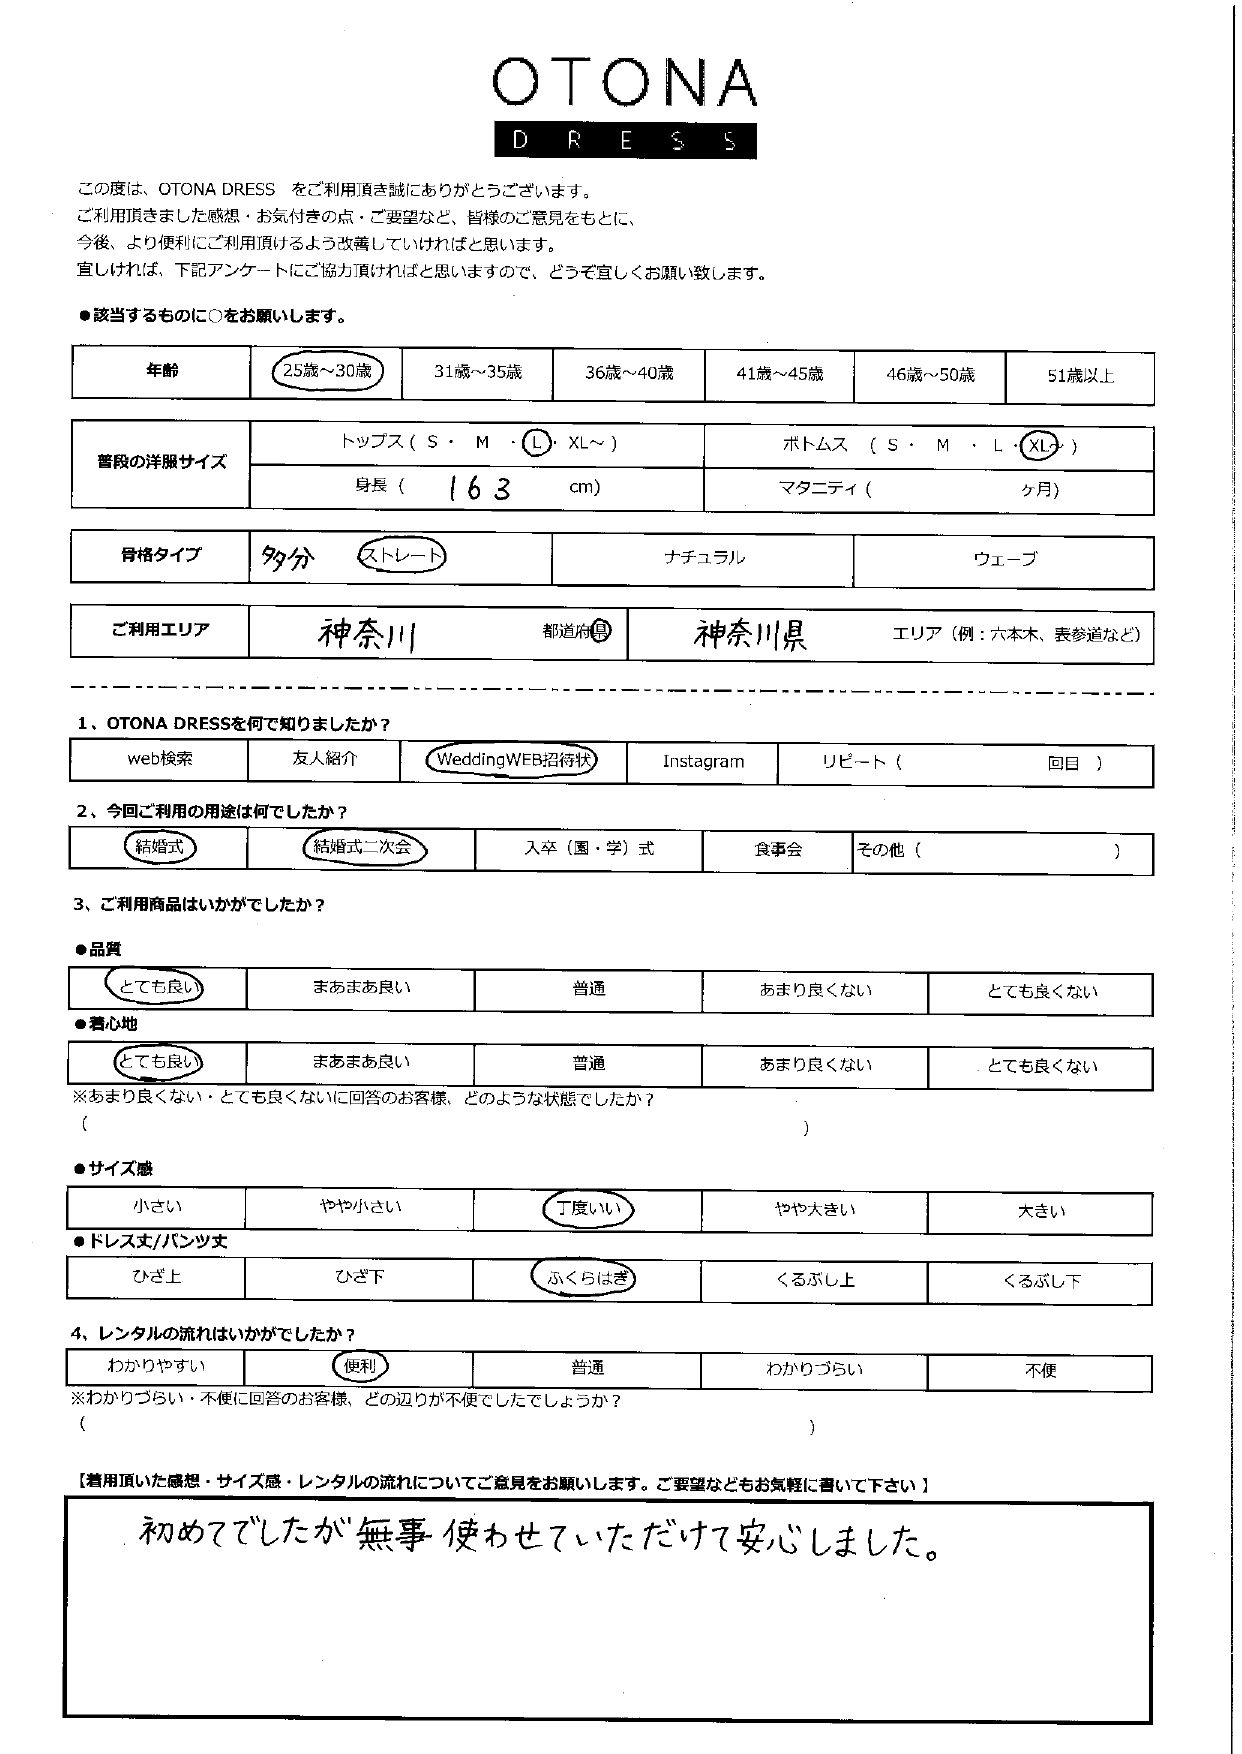 OTONA
DRESS
この度は、OTONA DRESS をご利用頂き誠にありがとうございます。
ご利用頂きました感想・お気付きの点・ご要望など、皆様のご意見をもとに、
今後、より便利にご利用頂けるよう改善していければと思います。
宜しければ、下記アンケートにご協力頂ければと思いますので、どうぞ宜しくお願い致します。
●該当するものに○をお願いします。
年齢 25歳～30歳 31歳～35歳 36歳～40歳 41歳～45歳 46歳～50歳 51歳以上
普段の洋服サイズ トップス ( S ・ M ・ L ・ XL～ ) ボトムス ( S ・ M ・ L ・ XL～ )
身長 ( 163 cm) マタニティ ( ヶ月)
骨格タイプ 多分 ストレート ナチュラル ウェーブ
ご利用エリア 神奈川 都道府県 神奈川県 エリア（例：六本木、表参道など）
1、OTONA DRESSを何で知りましたか？
web検索 友人紹介 WeddingWEB招待状 Instagram リピート（ 回目 ）
2、今回ご利用の用途は何でしたか？
結婚式 結婚式二次会 入卒（園・学）式 食事会 その他（ ）
3、ご利用商品はいかがでしたか？
●品質
とても良い まあまあ良い 普通 あまり良くない とても良くない
●着心地
とても良い まあまあ良い 普通 あまり良くない とても良くない
※あまり良くない・とても良くないに回答のお客様、どのような状態でしたか？
( )
●サイズ感
小さい やや小さい 丁度いい やや大きい 大きい
●ドレス丈/パンツ丈
ひざ上 ひざ下 ふくらはぎ くるぶし上 くるぶし下
4、レンタルの流れはいかがでしたか？
わかりやすい 便利 普通 わかりづらい 不便
※わかりづらい・不便に回答のお客様、どの辺りが不便でしたでしょうか？
( )
【着用頂いた感想・サイズ感・レンタルの流れについてご意見をお願いします。ご要望などもお気軽に書いて下さい】
初めてでしたが無事使わせていただけて安心しました。